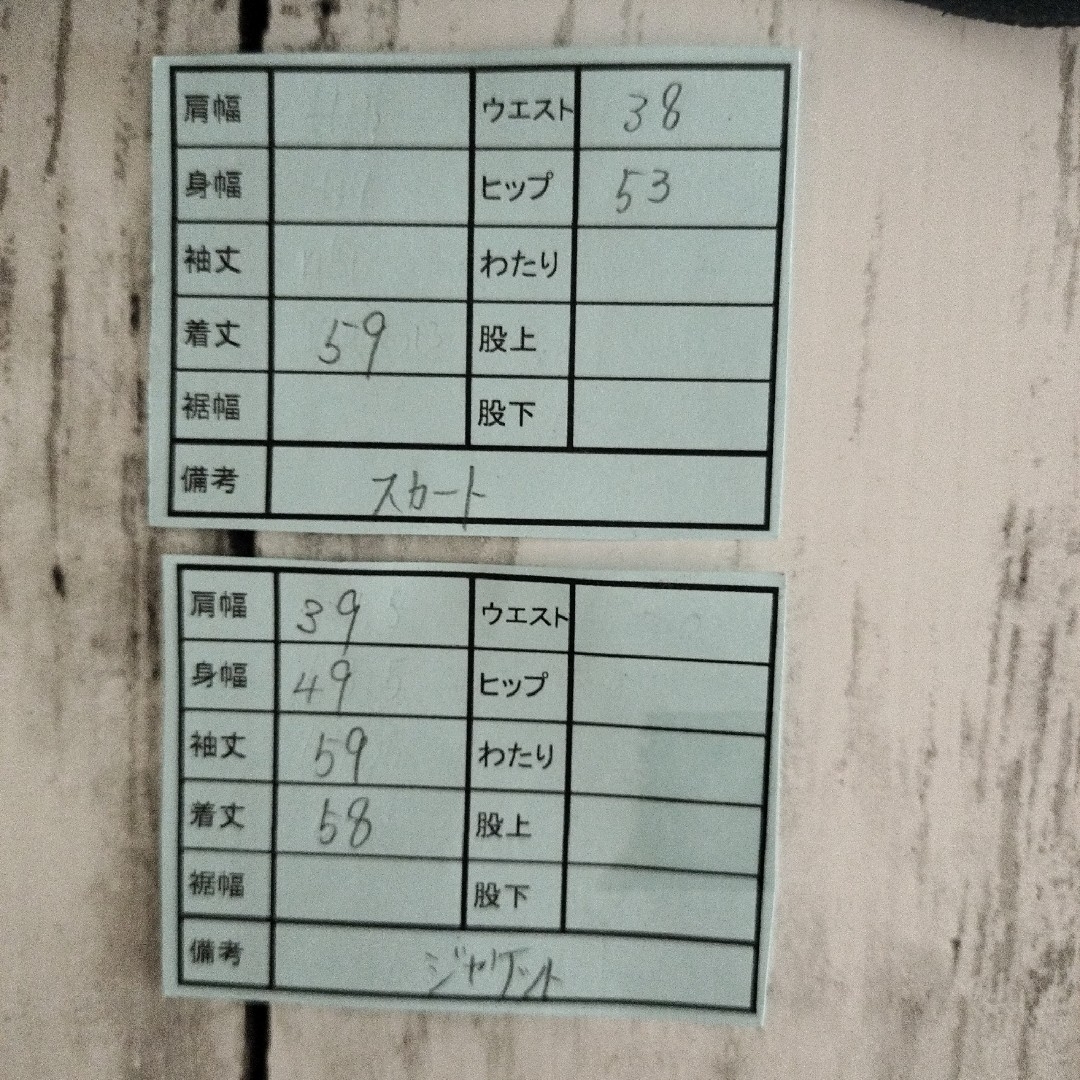 肩幅 ウエスト 38
身幅 ヒップ 53
袖丈 わたり
着丈 59 股上
裾幅 股下
備考 スカート
肩幅 39 ウエスト
身幅 49 ヒップ
袖丈 59 わたり
着丈 58 股上
裾幅 股下
備考 ジャケット